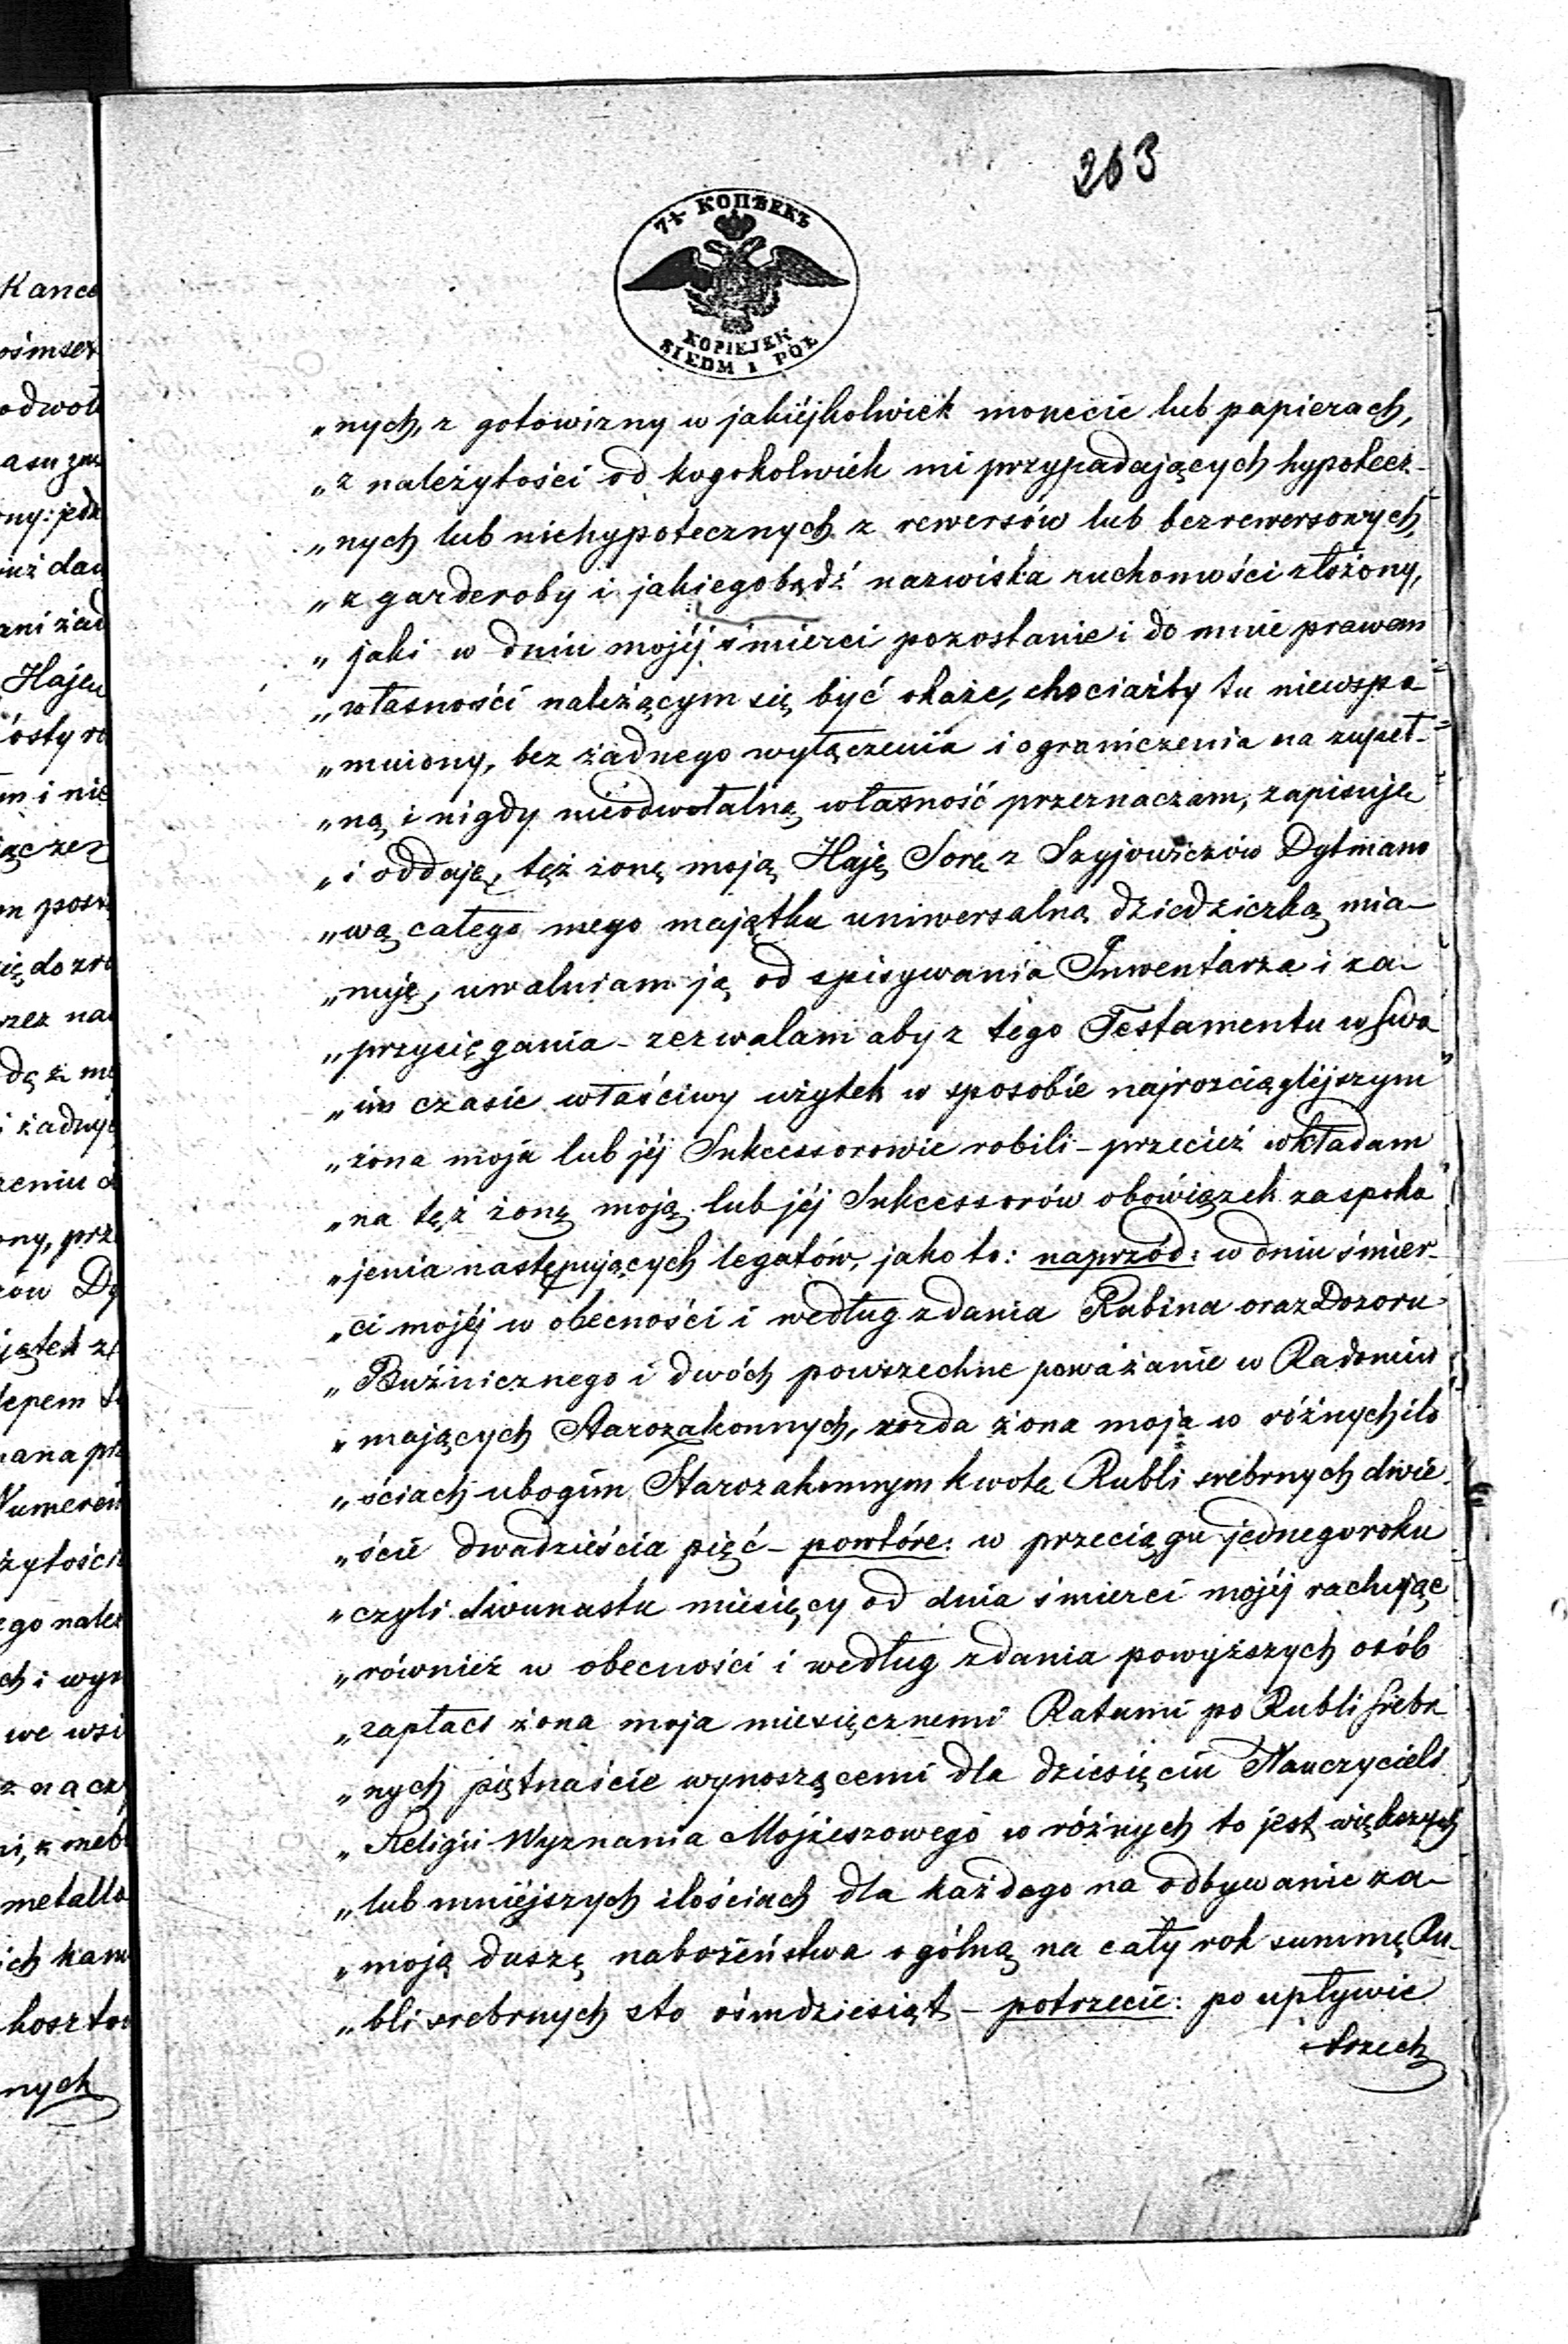 263
7½ КОПѢЕКЪ
KOPIEJEK
SIEDM I PÓŁ
„nych, z gotowizny w jakiéjkolwiek monecie lub papierach,
„z należytości od kogokolwiek mi przypadających hypotecz-
„nych lub niehypotecznych z rewersów lub bezrewersowych,
„z garderoby i jakiegobądź nazwiska ruchomości złożony,
„jaki w dniu mojéj śmierci pozostanie i do mnie prawem
„własności należącym się być okaże, chociażby tu niewspo-
„mniony, bez żadnego wyłączenia i ograniczenia na zupeł-
„ną i nigdy nieodwołalną własność przeznaczam, zapisuję
„i oddaję, też żonę moją Haję Sorę z Szyjowiczów Dytmano
„wą całego mego majątku uniwersalną dziedziczką mia-
„nuję, uwalniam ją od spisywania Inwentarza i za-
„przysięgania - zezwalam aby z tego Testamentu w swo
„im czasie właściwy użytek w sposobie najrozciąglejszym
„żona moja lub jéj Sukcessorowie robili - przecież wkładam
„na też żonę moją lub jéj Sukcessorów obowiązek zaspoko
„jenia następujących legatów, jako to: naprzód: w dniu śmier-
„ci mojéj w obecności i według zdania Rabina oraz Dozoru
„Bużnicznego i dwóch powszechne poważanie w Radomiu
„mających Starozakonnych, rozda żona moja w różnych ilo
„ściach ubogim Starozakonnym kwotę Rubli srebrnych dwie-
„ście dwadzieścia pięć - powtóre: w przeciągu jednego roku
„czyli dwunastu miesięcy od dnia śmierci mojéj rachując
„również w obecności i według zdania powyższych osób
„zapłaci żona moja miesięcznemi Ratami po Rubli srebr
„nych piętnaście wynoszącemi dla dziesięciu Nauczycieli
„Religii Wyznania Mojżeszowego w różnych to jest większych
„lub mniéjszych ilościach dla każdego na odbywanie za-
„moją duszę nabożeństwa ogólną na cały rok summę Ru-
„bli srebrnych sto ośmdziesiąt - potrzecie: po upływie
trzech